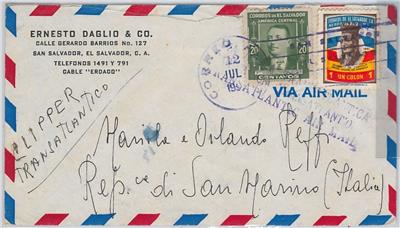 ERNESTO DAGLIO & CO.
CALLE GERARDO BARRIOS No. 127
SAN SALVADOR, EL SALVADOR, C. A.
TELEFONOS 1491 Y 791
CABLE "ERDAGO"
CORREOS DE EL SALVADOR
AMERICA CENTRAL
20 20
CENTAVOS
1 UN COLON 1
CORREO
12
JUL
VIA AIR MAIL
CLIPPER
TRANSATLANTICO
Mariela e Orlando Reffi
Rep.ca di San Marino (Italia)